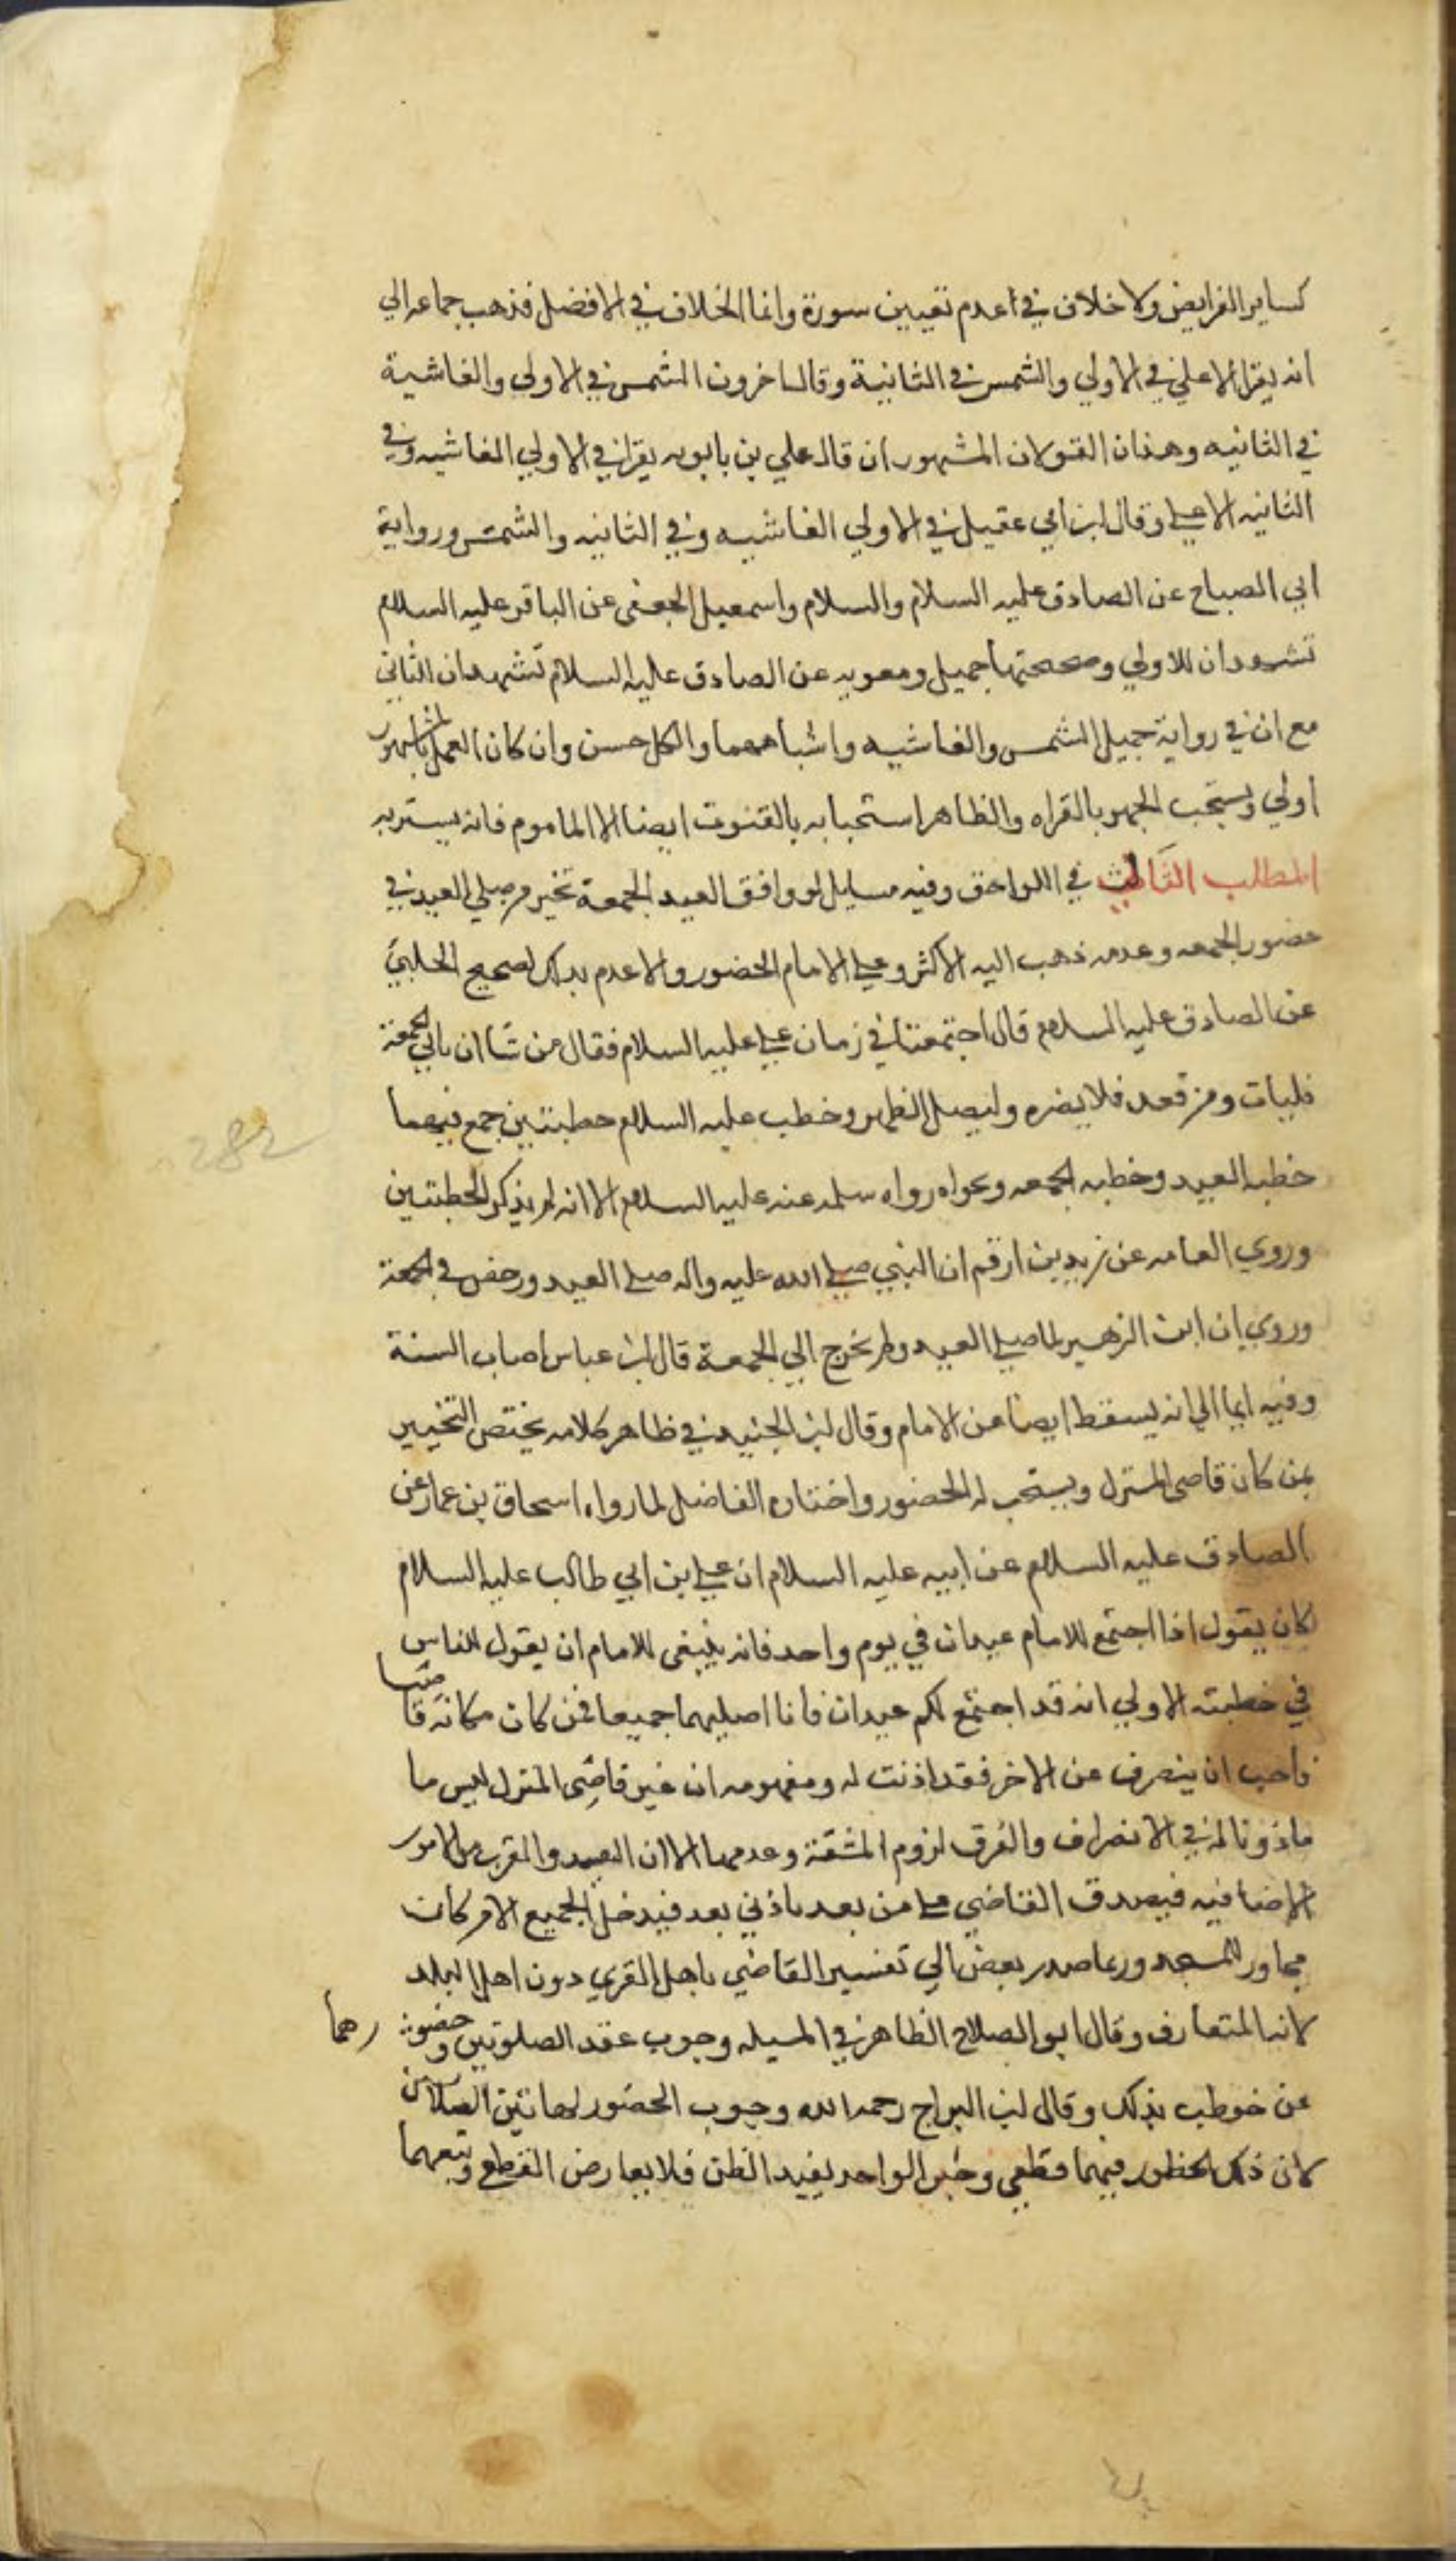 كساير الفرايض ولا خلاف في اعدم تعيين سورة وانما الخلاف في الافضل فذهب جماعه الي
انه يقرا الاعلي في الاولي والشمس في الثانية وقال اخرون الشمس في الاولي والغاشية
في الثانيه وهذان القولان المشهوران قال علي بن بابويه يقرا في الاولي الغاشيه وفي
الثانيه الاعلي وقال ابن ابي عقيل في الاولي الغاشيه وفي الثانيه والشمس ورواية
ابي الصباح عن الصادق عليه السلام والسلام واسمعيل الجعفي عن الباقر عليه السلام
تشهدان للاولي وصحيحتها جميل ومعويه عن الصادق عليه السلام تشهدان الثاني
مع ان في رواية جميل الشمس والغاشيه واشباههما والكل حسن وان كان العمل بالمشهور
اولي ويستحب الجهر بالقراه والظاهر استحبابه بالقنوت ايضا الا الماموم فانه يستر به
المطلب الثالث في اللواحق وفيه مسايل لو وافق العيد الجمعة تخير من صلي العيد في
حضور الجمعه وعدمه ذهب اليه الاكثر وعلي الامام الحضور والاعدم بذلك لصحيح الحلبي
عن الصادق عليه السلام قال اجتمعتا في زمان علي عليه السلام فقال من شا ان ياتي الجمعة
فليات ومن قعد فلا يضره وليصل الظهر وخطب عليه السلام خطبتين جمع فيهما
خطبه العيد وخطبه الجمعه ونحواه رواه سلمه عنه عليه السلام الا انه لم يذكر الخطبتين
وروي العامه عن زيد بن ارقم ان النبي صلي الله عليه واله صلي العيد ورخص في الجمعة
وروي ان ابن الزهير لما صلي العيد ولم يخرج الي الجمعة قال ابن عباس اصاب السنة
وفيه ايما الي انه يسقط ايضا عن الامام وقال ابن الجنيد في ظاهر كلامه يختص التخيير
بمن كان قاصي المنزل ويستحب له الحضور واختاره الفاضل لما رواه اسحاق بن عمار عن
الصادق عليه السلام عن ابيه عليه السلام ان علي بن ابي طالب عليه السلام
كان يقول اذا اجتمع للامام عيدان في يوم واحد فانه ينبغي للامام ان يقول للناس
في خطبته الاولي انه قد اجتمع لكم عيدان فانا اصليهما جميعا فمن كان مكانه قاصيا
فاحب ان ينصرف عن الاخر فقد اذنت له ومفهومه ان غير قاصي المنزل ليس ما
ماذونا له في الانصراف والفرق لزوم المشقة وعدمها الا ان البعيد والقرب من الامور
الاضافيه فيصدق القاضي علي من بعد باذني بعد فيدخل الجميع الا من كان
مجاور المسجد وربما صدر بعض الي تفسير القاضي باهل القري دون اهل البلد
لانه المتعارف وقال ابو الصلاح الظاهر في المسيله وجوب عقد الصلوتين وحضور
رهما
عن خوطب بذلك وقال ابن البراج رحمه الله وجوب الحضور لهاتين الصلاتين
لان ذلك الحظور فيهما قطعي وخبر الواحد يفيد الظن فلا يعارض القطع ويتعهما
282